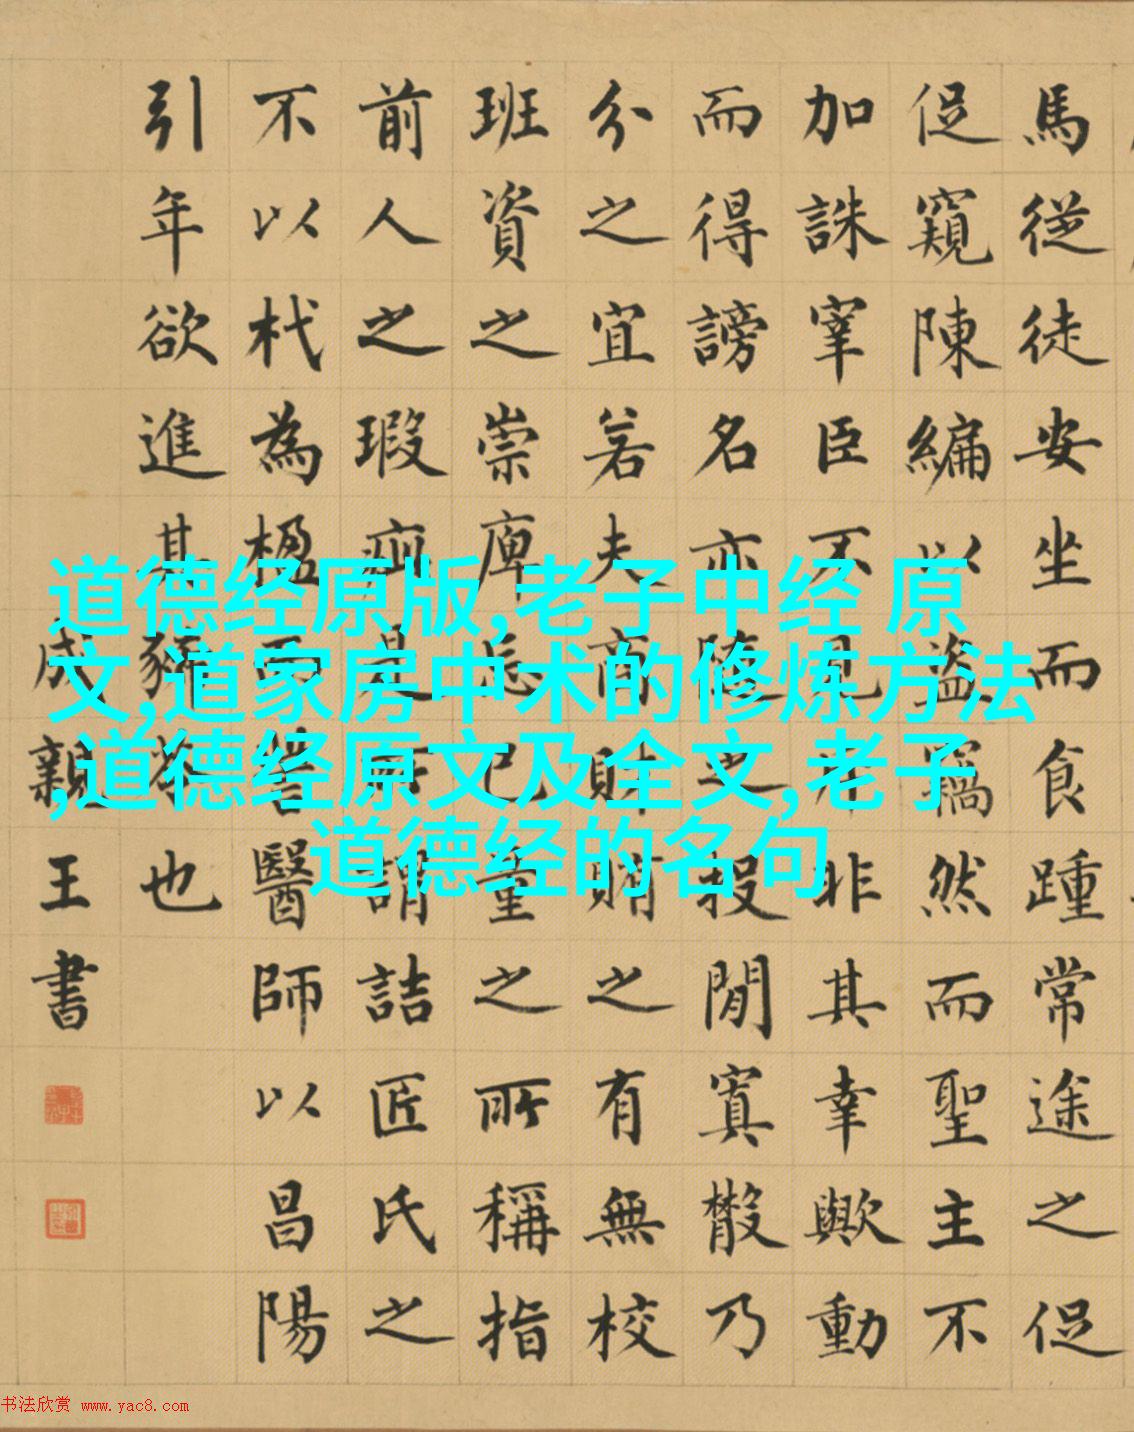 馬從徒安坐而食踵常途之促
促窺陳編以盜竊然而聖主不
加誅宰臣不見斥非其幸歟動
而得謗名亦隨之投閒寘散乃
分之宜若夫商財賄之有無校
班資之崇庳忘己量之所稱指
前人之瑕疵是所謂詰匠氏之
不以杙為楹而訾醫師以昌陽
引年欲進其豨苓也
成親王書
道德经原版,老子中经 原
文,道家房中术的修炼方法
,道德经原文及全文,老子
道德经的名句
书法欣赏 www.yac8.com